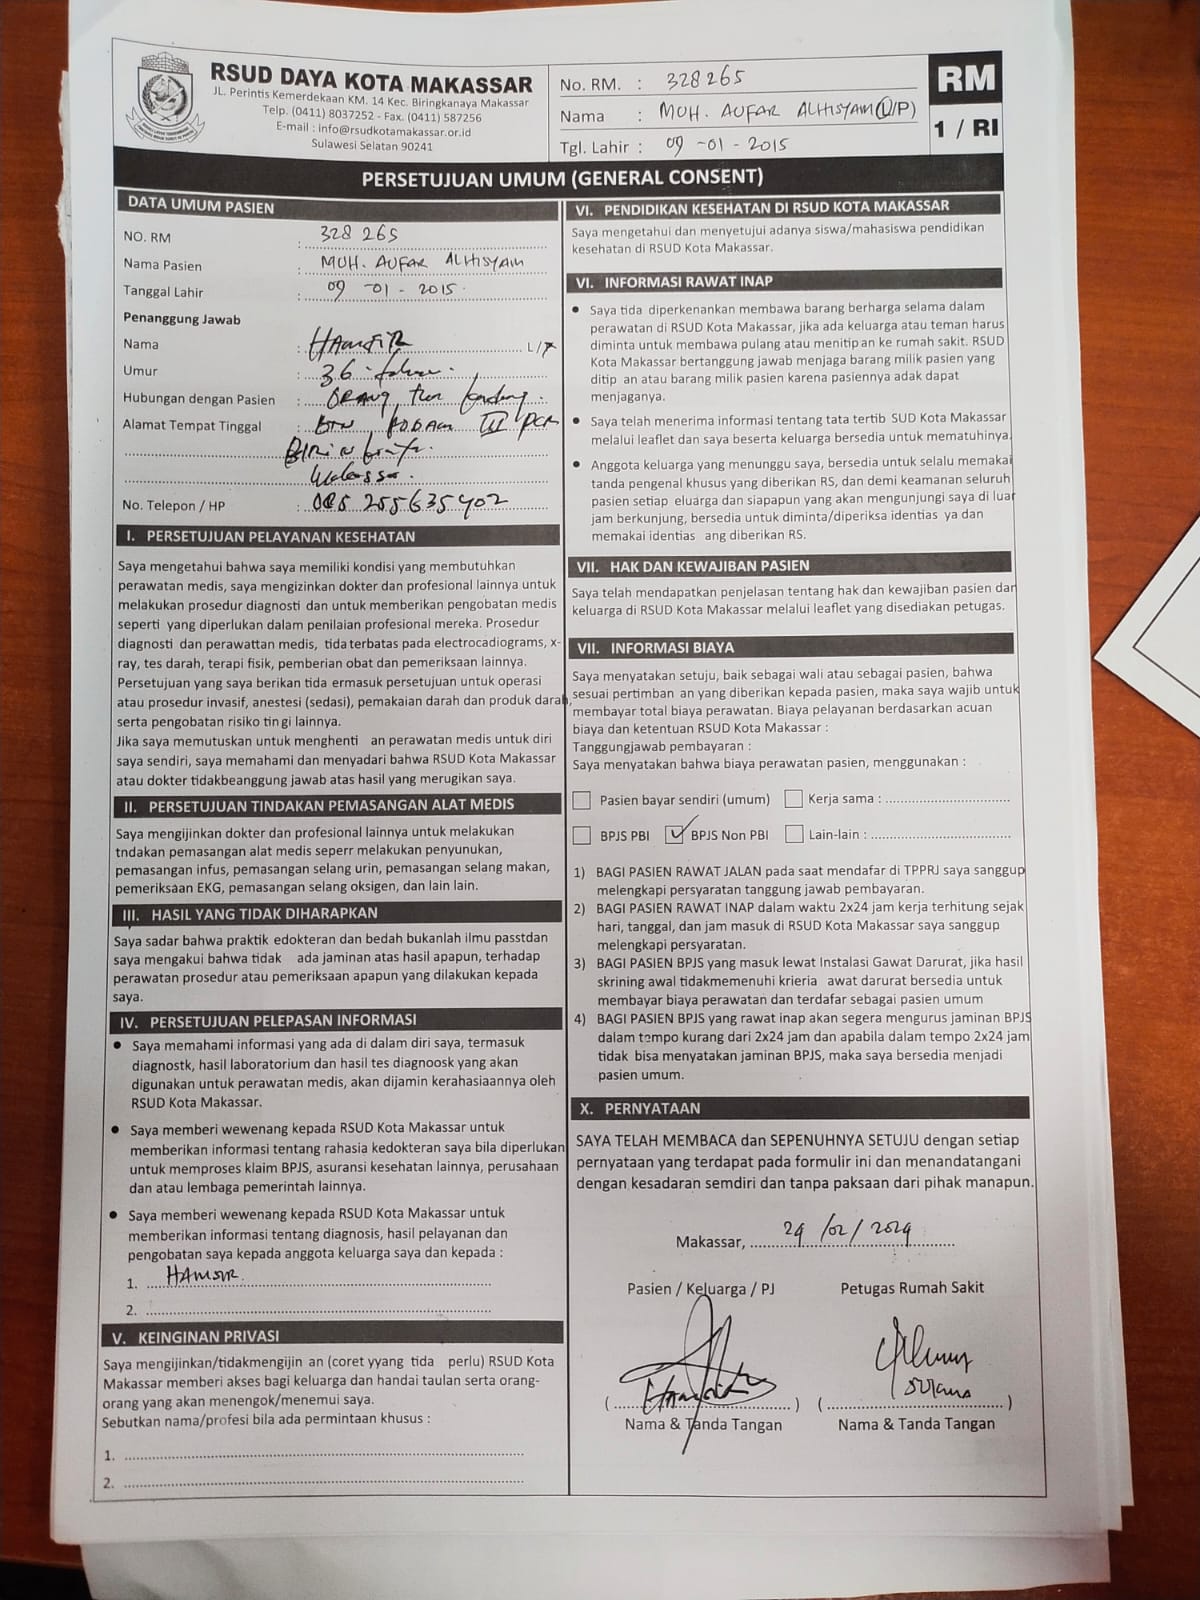 RSUD DAYA KOTA MAKASSAR
JL. Perintis Kemerdekaan KM. 14 Kec. Biringkanaya Makassar
Telp. (0411) 8037252 - Fax. (0411) 587256
E-mail : info@rsudkotamakassar.or.id
Sulawesi Selatan 90241
No. RM. : 328265
Nama : MUH. AUFAR ALHISYAM (L/P)
Tgl. Lahir : 09 -01 - 2015
RM
1 / RI
PERSETUJUAN UMUM (GENERAL CONSENT)
DATA UMUM PASIEN
NO. RM : 328 265
Nama Pasien : MUH. AUFAR ALHISYAM
Tanggal Lahir : 09 -01 - 2015.
Penanggung Jawab
Nama : L/P
Umur : 36
Hubungan dengan Pasien : ORANG
Alamat Tempat Tinggal : BTN III
No. Telepon / HP : 085 255635402
I. PERSETUJUAN PELAYANAN KESEHATAN
Saya mengetahui bahwa saya memiliki kondisi yang membutuhkan
perawatan medis, saya mengizinkan dokter dan profesional lainnya untuk
melakukan prosedur diagnosti dan untuk memberikan pengobatan medis
seperti yang diperlukan dalam penilaian profesional mereka. Prosedur
diagnosti dan perawattan medis, tida terbatas pada electrocadiograms, x-
ray, tes darah, terapi fisik, pemberian obat dan pemeriksaan lainnya.
Persetujuan yang saya berikan tida ermasuk persetujuan untuk operasi
atau prosedur invasif, anestesi (sedasi), pemakaian darah dan produk darah,
serta pengobatan risiko tin gi lainnya.
Jika saya memutuskan untuk menghenti an perawatan medis untuk diri
saya sendiri, saya memahami dan menyadari bahwa RSUD Kota Makassar
atau dokter tidakbeanggung jawab atas hasil yang merugikan saya.
II. PERSETUJUAN TINDAKAN PEMASANGAN ALAT MEDIS
Saya mengijinkan dokter dan profesional lainnya untuk melakukan
tndakan pemasangan alat medis seperr melakukan penyunukan,
pemasangan infus, pemasangan selang urin, pemasangan selang makan,
pemeriksaan EKG, pemasangan selang oksigen, dan lain lain.
III. HASIL YANG TIDAK DIHARAPKAN
Saya sadar bahwa praktik edokteran dan bedah bukanlah ilmu passtdan
saya mengakui bahwa tidak ada jaminan atas hasil apapun, terhadap
perawatan prosedur atau pemeriksaan apapun yang dilakukan kepada
saya.
IV. PERSETUJUAN PELEPASAN INFORMASI
• Saya memahami informasi yang ada di dalam diri saya, termasuk
diagnostk, hasil laboratorium dan hasil tes diagnoosk yang akan
digunakan untuk perawatan medis, akan dijamin kerahasiaannya oleh
RSUD Kota Makassar.
• Saya memberi wewenang kepada RSUD Kota Makassar untuk
memberikan informasi tentang rahasia kedokteran saya bila diperlukan
untuk memproses klaim BPJS, asuransi kesehatan lainnya, perusahaan
dan atau lembaga pemerintah lainnya.
• Saya memberi wewenang kepada RSUD Kota Makassar untuk
memberikan informasi tentang diagnosis, hasil pelayanan dan
pengobatan saya kepada anggota keluarga saya dan kepada :
1.
2.
V. KEINGINAN PRIVASI
Saya mengijinkan/tidakmengijin an (coret yyang tida perlu) RSUD Kota
Makassar memberi akses bagi keluarga dan handai taulan serta orang-
orang yang akan menengok/menemui saya.
Sebutkan nama/profesi bila ada permintaan khusus :
1.
2.
VI. PENDIDIKAN KESEHATAN DI RSUD KOTA MAKASSAR
Saya mengetahui dan menyetujui adanya siswa/mahasiswa pendidikan
kesehatan di RSUD Kota Makassar.
VI. INFORMASI RAWAT INAP
• Saya tida diperkenankan membawa barang berharga selama dalam
perawatan di RSUD Kota Makassar, jika ada keluarga atau teman harus
diminta untuk membawa pulang atau menitip an ke rumah sakit. RSUD
Kota Makassar bertanggung jawab menjaga barang milik pasien yang
ditip an atau barang milik pasien karena pasiennya adak dapat
menjaganya.
• Saya telah menerima informasi tentang tata tertib SUD Kota Makassar
melalui leaflet dan saya beserta keluarga bersedia untuk mematuhinya
• Anggota keluarga yang menunggu saya, bersedia untuk selalu memakai
tanda pengenal khusus yang diberikan RS, dan demi keamanan seluruh
pasien setiap eluarga dan siapapun yang akan mengunjungi saya di luar
jam berkunjung, bersedia untuk diminta/diperiksa identias ya dan
memakai identias ang diberikan RS.
VII. HAK DAN KEWAJIBAN PASIEN
Saya telah mendapatkan penjelasan tentang hak dan kewajiban pasien dan
keluarga di RSUD Kota Makassar melalui leaflet yang disediakan petugas.
VII. INFORMASI BIAYA
Saya menyatakan setuju, baik sebagai wali atau sebagai pasien, bahwa
sesuai pertimban an yang diberikan kepada pasien, maka saya wajib untuk
membayar total biaya perawatan. Biaya pelayanan berdasarkan acuan
biaya dan ketentuan RSUD Kota Makassar :
Tanggungjawab pembayaran :
Saya menyatakan bahwa biaya perawatan pasien, menggunakan :
Pasien bayar sendiri (umum) Kerja sama :
BPJS PBI ✓ BPJS Non PBI Lain-lain :
1) BAGI PASIEN RAWAT JALAN pada saat mendafar di TPPRJ saya sanggup
melengkapi persyaratan tanggung jawab pembayaran.
2) BAGI PASIEN RAWAT INAP dalam waktu 2x24 jam kerja terhitung sejak
hari, tanggal, dan jam masuk di RSUD Kota Makassar saya sanggup
melengkapi persyaratan.
3) BAGI PASIEN BPJS yang masuk lewat Instalasi Gawat Darurat, jika hasil
skrining awal tidakmemenuhi krieria awat darurat bersedia untuk
membayar biaya perawatan dan terdafar sebagai pasien umum
4) BAGI PASIEN BPJS yang rawat inap akan segera mengurus jaminan BPJS
dalam tempo kurang dari 2x24 jam dan apabila dalam tempo 2x24 jam
tidak bisa menyatakan jaminan BPJS, maka saya bersedia menjadi
pasien umum.
X. PERNYATAAN
SAYA TELAH MEMBACA dan SEPENUHNYA SETUJU dengan setiap
pernyataan yang terdapat pada formulir ini dan menandatangani
dengan kesadaran semdiri dan tanpa paksaan dari pihak manapun.
Makassar, 29 /02/ 2024
Pasien / Keluarga / PJ Petugas Rumah Sakit
Nama & Tanda Tangan Nama & Tanda Tangan